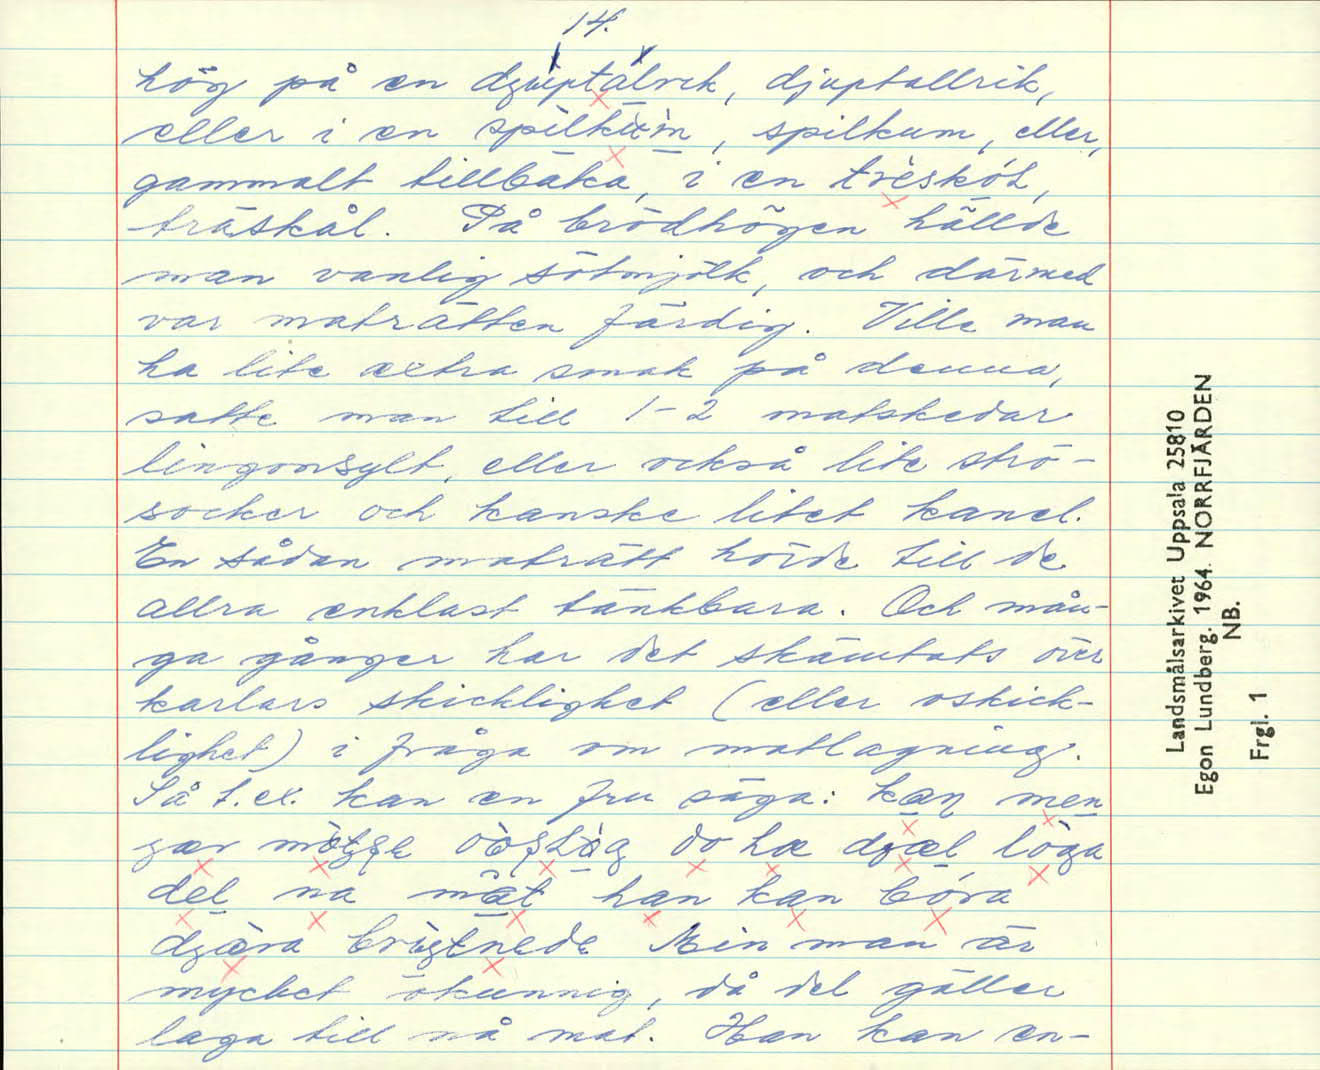 14.
hög på en djuptalrik, djuptallrik,
eller i en spilkum, spilkum, eller,
gammalt tillbaka, i en träskol,
träskål. På brödhögen hällde
man vanlig sötmjölk, och därmed
var maträtten färdig. Ville man
ha lite extra smak på denna,
satte man till 1-2 matskedar
lingonsylt, eller också lite strö-
socker och kanske litet kanel.
En sådan maträtt hörde till de
allra enklast tänkbara. Och mån-
ga gånger har det skämtats över
karlars skicklighet (eller oskick-
lighet) i fråga om matlagning.
Så t.ex. kan en fru säga: kan men
do
na mat han kan bora
Min man är
mycket okunnig, då det gäller
laga till nå mat. Han kan en-
Landsmålsarkivet Uppsala 25810
Egon Lundberg. 1964. NORRFJÄRDEN
NB.
Frgl. 1